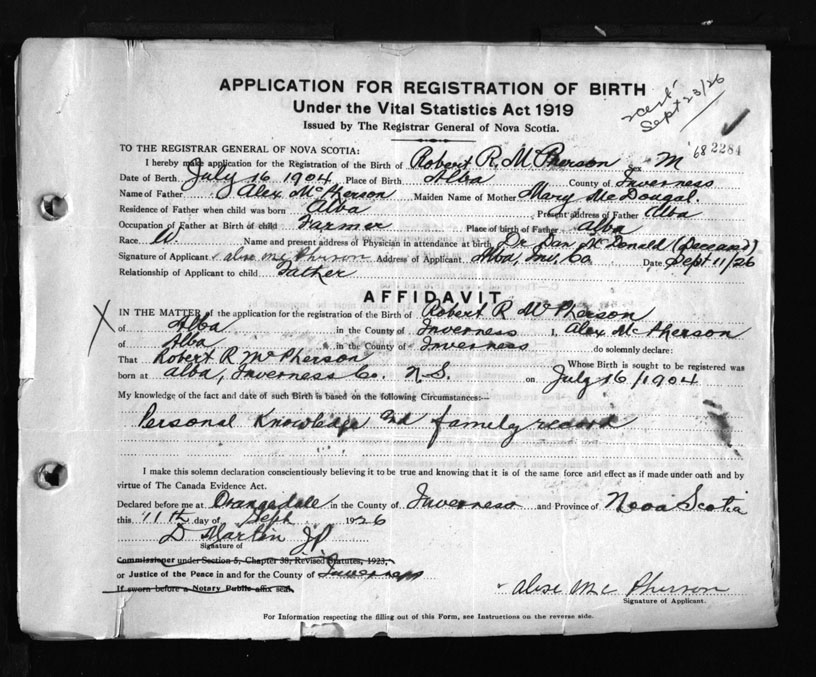 APPLICATION FOR REGISTRATION OF BIRTH
Under the Vital Statistics Act 1919
Issued by The Registrar General of Nova Scotia.
Sept 23/26
68 2284
TO THE REGISTRAR GENERAL OF NOVA SCOTIA:
I hereby make application for the Registration of the Birth of Robert R. McPherson Sex M
Date of Birth July 16 1904 Place of Birth Alba County of Inverness
Name of Father Alex McPherson Maiden Name of Mother Mary McDougal.
Residence of Father when child was born Alba Present address of Father Alba
Occupation of Father at Birth of child Farmer Place of birth of Father Alba
Race W. Name and present address of Physician in attendance at birth Dr Dan McDonald (Deceased)
Signature of Applicant McPherson Address of Applicant Alba, Inv. Co Date Sept 11/26
Relationship of Applicant to child Father
AFFIDAVIT
X
IN THE MATTER of the application for the registration of Birth of Robert R McPherson
of Alba in the County of Inverness I, Alex McPherson
of Alba in the County of Inverness do solemnly declare:
That Robert R McPherson Whose Birth is sought to be registered was
born at Alba, Inverness Co. N.S. on July 16/1904
My knowledge of the fact and date of such Birth is based on the following Circumstances:—
Personal Knowledge and family record
I make this solemn declaration conscientiously believing it to be true and knowing that it is of the same force and effect as if made under oath and by
virtue of The Canada Evidence Act.
Declared before me at Orangedale in the County of Inverness and Province of Nova Scotia
this 11th day of Sept 1926
D Martin JP
Signature of
Commissioner under Section 5, Chapter 38, Revised Statutes, 1923,
or Justice of the Peace in and for the County of Inverness
If sworn before a Notary Public affix seal.
Mc Pherson
Signature of Applicant.
For Information respecting the filling out of this Form, see Instructions on the reverse side.